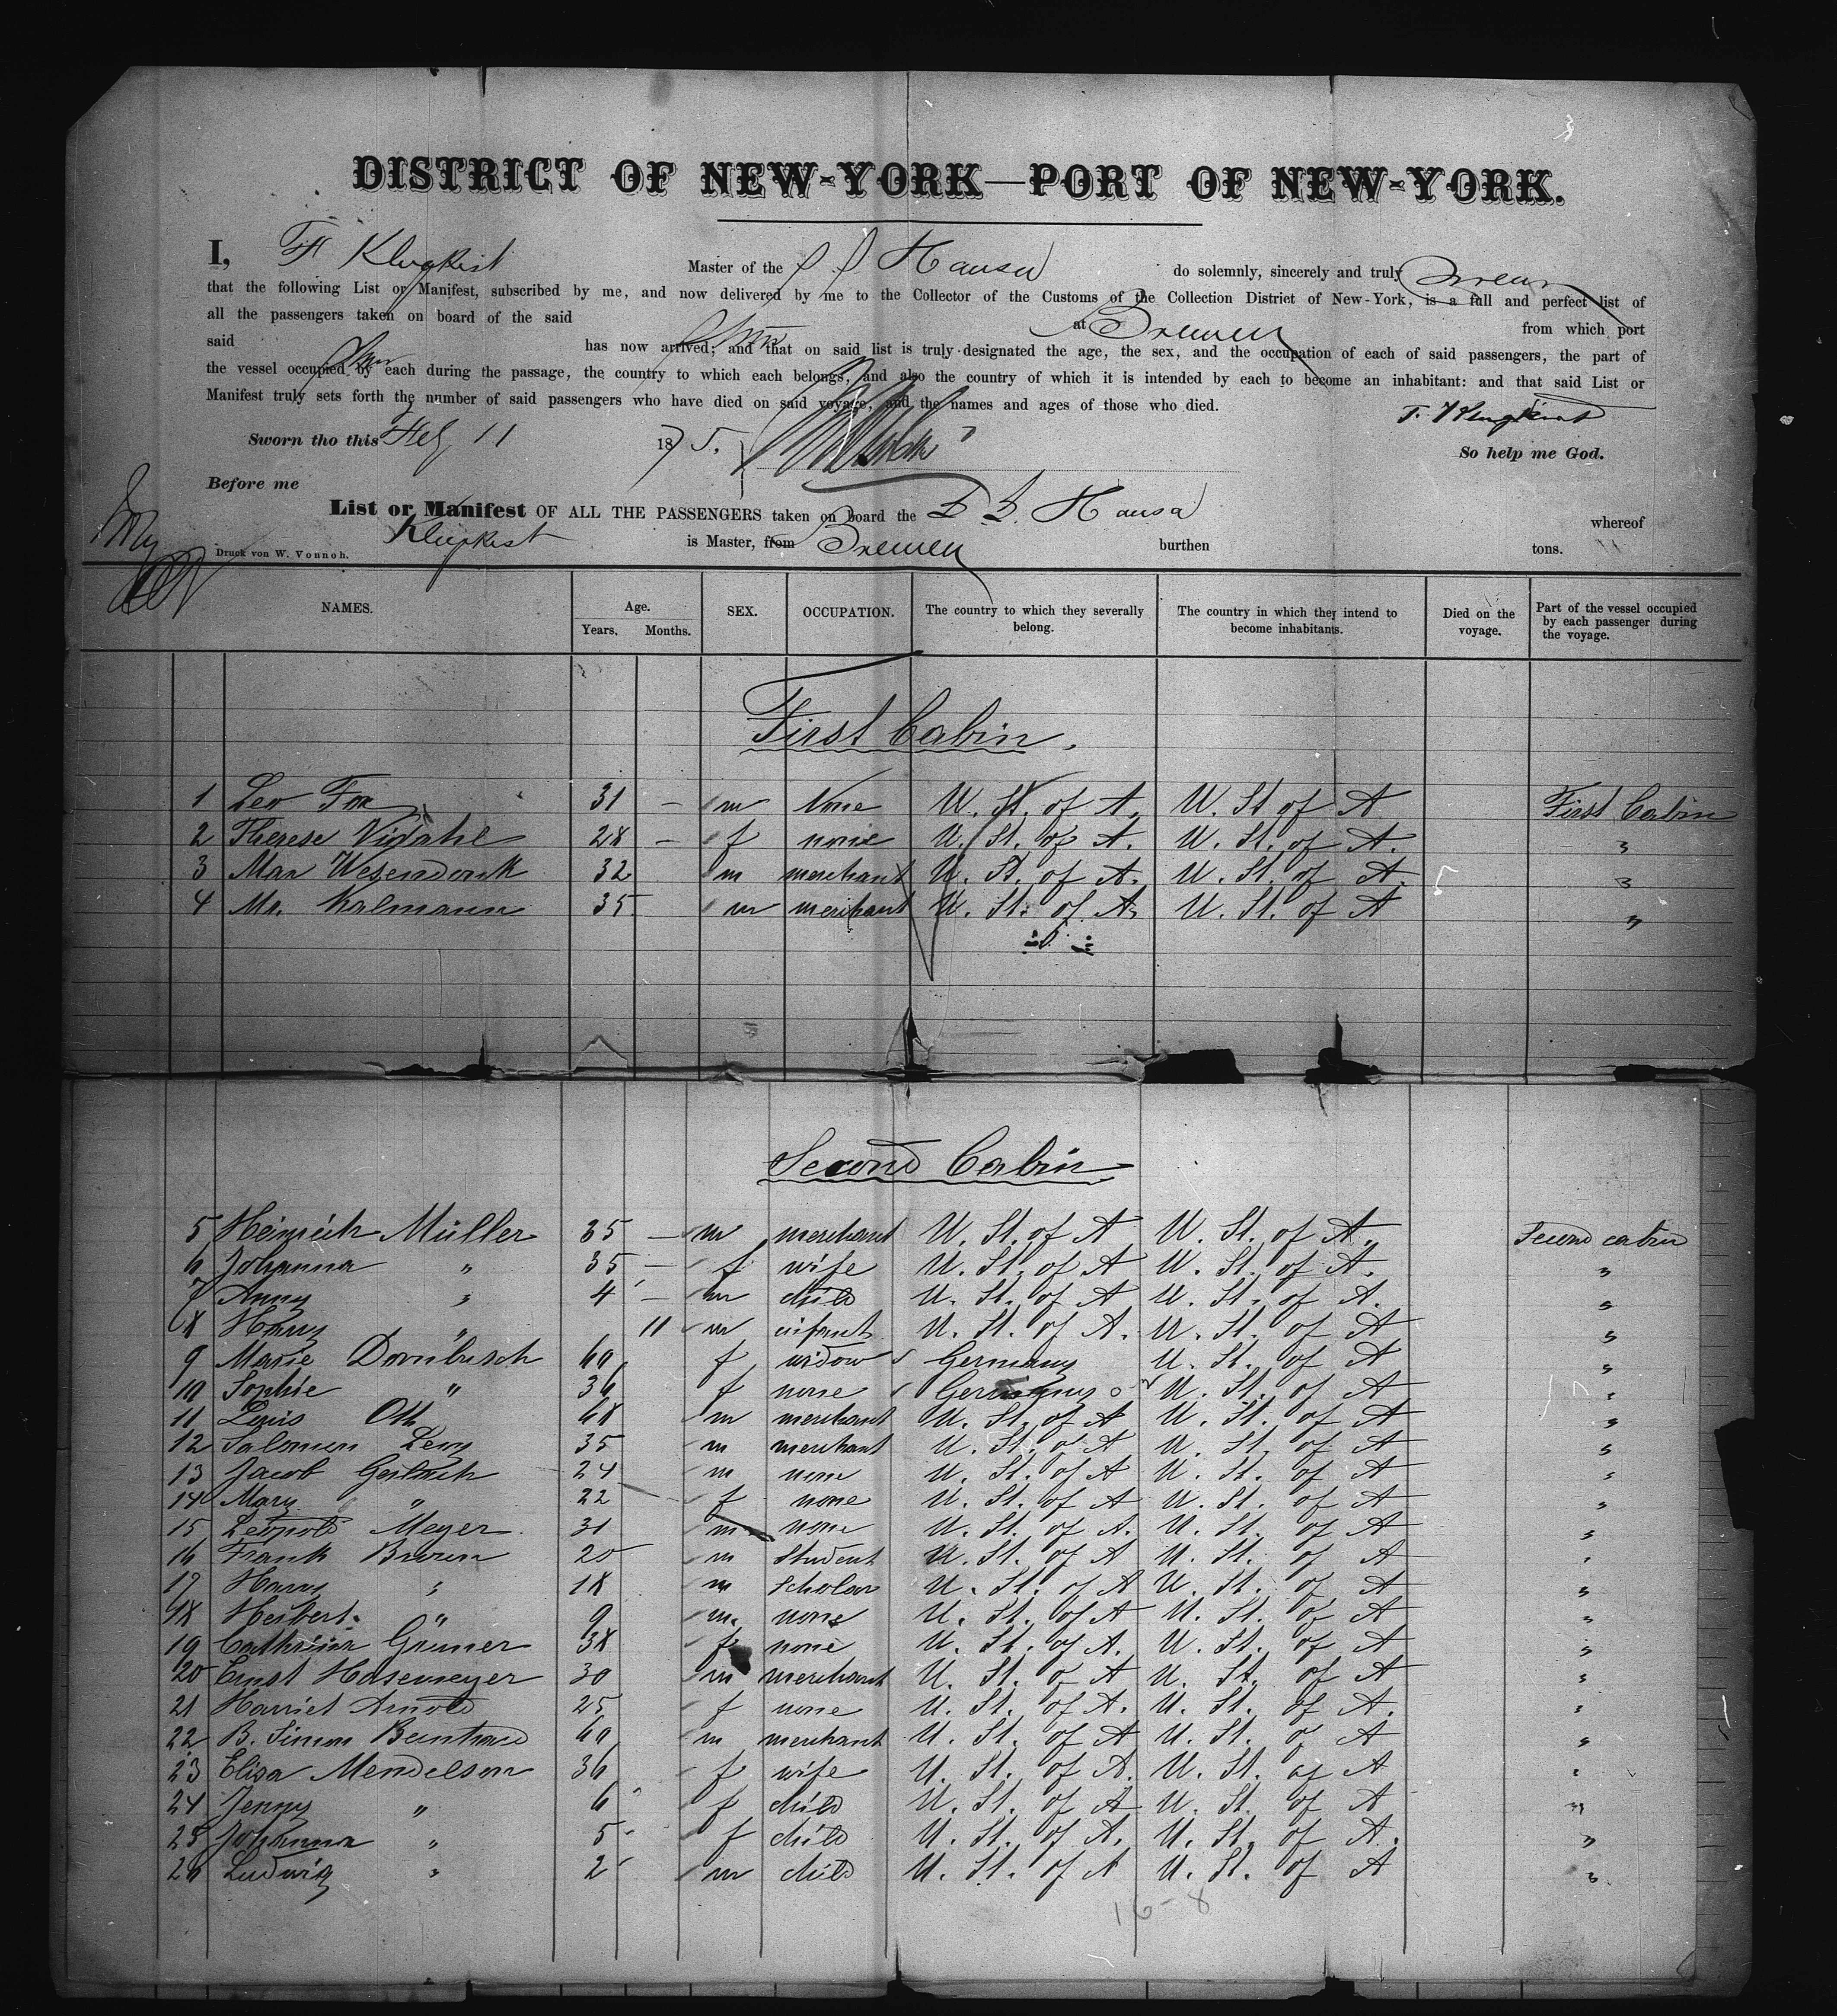 DISTRICT OF NEW-YORK—PORT OF NEW-YORK.
I, Klugkist Master of the S. S. Hansa do solemnly, sincerely and truly swear
that the following List or Manifest, subscribed by me, and now delivered by me to the Collector of the Customs of the Collection District of New-York, is a full and perfect list of
all the passengers taken on board of the said at Bremen from which port
said has now arrived; and that on said list is truly designated the age, the sex, and the occupation of each of said passengers, the part of
the vessel occupied by each during the passage, the country to which each belongs, and also the country of which it is intended by each to become an inhabitant: and that said List or
Manifest truly sets forth the number of said passengers who have died on said voyage, and the names and ages of those who died.
Sworn tho this Feb 11 1875. So help me God.
Before me
List or Manifest OF ALL THE PASSENGERS taken on board the S. S. Hansa whereof
Klugkist is Master, from Bremen burthen tons.
Druck von W. Vonnoh.
NAMES. Age. Years. Months. SEX. OCCUPATION. The country to which they severally belong. The country in which they intend to become inhabitants. Died on the voyage. Part of the vessel occupied by each passenger during the voyage.
First Cabin.
1 Leo Fox 31 — m None U. St. of A. U. St of A First Cabin
2 Therese Vidahl 28 — f none U. St. of A. U. St. of A. "
3 Max Wesendonk 32 m merchant U. St. of A. U. St. of A. "
4 Mr. Kalmann 35 m merchant U. St. of A. U. St. of A "
Second Cabin
5 Heinrich Müller 35 — m merchant U. St. of A U. St. of A. Second cabin
6 Johanna " 35 — f wife U. St. of A U. St. of A. "
7 Anny " 4 — m child U. St. of A U. St. of A. "
8 Harry " 11 m infant U. St. of A. U. St. of A "
9 Marie Dornbusch 60 f widow Germany U. St. of A "
10 Sophie " 36 f none Germany U. St. of A "
11 Louis Oth 68 m merchant U. St. of A U. St. of A "
12 Salomon Levy 35 m merchant U. St. of A U. St. of A "
13 Jacob Gerlach 24 m none U. St. of A U. St. of A "
14 Mary " 22 f none U. St. of A U. St. of A "
15 Leopold Meyer 31 m none U. St. of A. U. St. of A "
16 Frank Brown 20 m Student U. St. of A U. St. of A "
17 Harry " 18 m Scholar U. St. of A U. St. of A "
18 Herbert " 9 m none U. St. of A U. St. of A "
19 Cathrina Gruner 38 f none U. St. of A. U. St. of A "
20 Ernst Hasemeyer 30 m merchant U. St. of A U. St. of A "
21 Harriet Arnold 25 f none U. St. of A. U. St. of A. "
22 B. Simon 60 m merchant U. St. of A U. St. of A "
23 Elisa Mendelson 36 f wife U. St. of A. U. St. of A "
24 Jenny " 6 f child U. St. of A U. St. of A "
25 Johanna " 5 f child U. St. of A. U. St. of A. "
26 Ludwig " 2 m child U. St. of A U. St. of A "
16-8